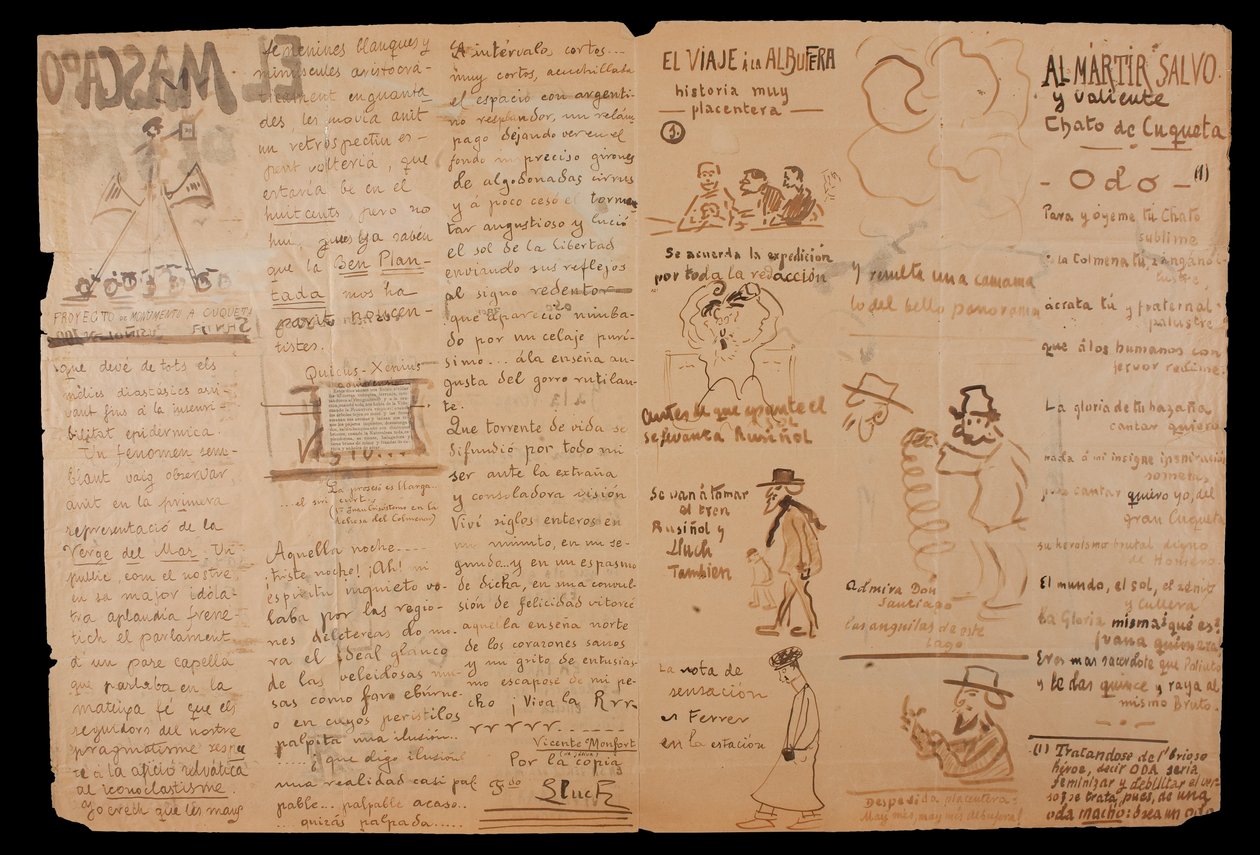 EL MASCARO
PROYECTO DE MONUMENTO A CUQUETA
que devé de tots els
médics diastásics arri-
vant fins á la insensi-
bilitat epidermica.
Un fenomen sem-
blant vaig observar,
anit en la primera
representació de la
Verge del Mar. Un
public, com el nostre,
en sa major idóla-
tra aplaudía frene-
tich el parlament
d'un pare capellá
que parlaba en la
mateixa fé que els
seguidors del nostre
pragmatisme respe
al iconoclastisme.
Yo crech que les mans
femenines llanques y
minúscules aristocrá-
ticament enguanta-
des, les movia anit
un retrospectiu es-
perit volteriá, que
estaria be en el
huitcents, pero no
hui, pues ya saben
que la Ben Plan-
tada mos ha
parit noucen-
tistes.
Quiclus-Xenius
La proseió es llarga..
...el siri curt..
Aquella noche....
¡triste noche! ¡Ah! mi
espíritu inquieto vo-
laba por las regio-
nes deletereas do mo-
ra el ideal glauco
de las veleidosas mu-
sas como faro ebúrne-
o en cuyos peristilos
palpita una ilusión...
¿que digo ilusión?
una realidad casi pal-
pable... palpable acaso..
...quizás palpada.....
A intérvalos cortos...
muy cortos, acuchillada
el espacio con argenti-
no resplandor, un relám-
pago dejando ver en el
fondo impreciso girones
de algodonadas cirrus
y á poco cesó el tormen
tar angustioso y lució
el sol de la libertad
enviando sus reflejos
al signo redentor
que apareció nimba-
do por un celaje purí-
simo... á la enseña au-
gusta del gorro rutilan-
te.
Que torrente de vida se
difundió por todo mi
ser ante la extraña
y consoladora visión
Viví siglos enteros en
un minuto, en un se-
gundo... y en un espasmo
de dicha, en una convul-
sión de felicidad vitoreé
aquella enseña norte
de los corazones sanos
y un grito de entusias-
mo escapóse de mi pe-
cho ¡Viva la Rrr
rrrrr.......
Vicente Monfort
Por la copia
Fdo LlucH
EL VIAJE á la ALBUFERA
historia muy
placentera
1.
Se acuerda la expedición
por toda la redacción
Antes de que apunte el
se levanta Rusiñol
Se van á tomar
el tren
Rusiñol y
Lluch
Tambien
La nota de
sensación
es Ferrer
en la estación
Y resulta una camama
lo del bello panorama
Admira Don
Santiago
las anguilas de este
lago
Despedida placentera:
May mes, may mes Albufera!
AL MÁRTIR SALVO
y valiente
Chato de Cuqueta
- Odo - (1)
Para y óyeme tú Chato
sublime
de la Colmena tú zángano i-
lustre,
ácrata tú y fraternal
palustre
que á los humanos con
fervor redime.
La gloria de tu hazaña
cantar quiero
nada á mi insigne inspiración
someta,
pues cantar quiero yo, del
gran Cuqueta
su heroismo brutal digno
de Homero.
El mundo, el sol, el zénit
y Cullera
La Gloria misma ¿qué es?
¡vana quimera!
Eres mas sacerdote que Poliuto
y le das quince y raya al
mismo Bruto.
(1) Tratandose del brioso
héroe, decir ODA seria
feminizar y debilitar el ver-
so; se trata pues, de una
oda macho: ó sea un odo